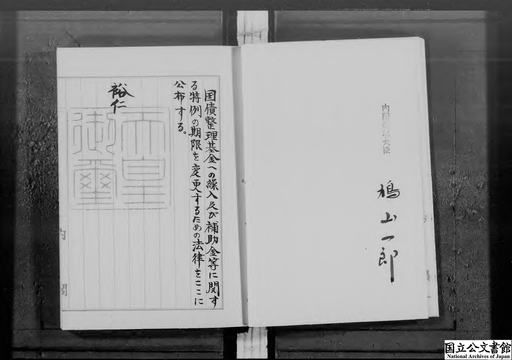 国債整理基金への繰入及び補助金等に関す
る特例の期限を変更するための法律をここに
公布する。
裕仁
天皇
御璽
内閣総理大臣
鳩山一郎
内閣
国立公文書館
National Archives of Japan